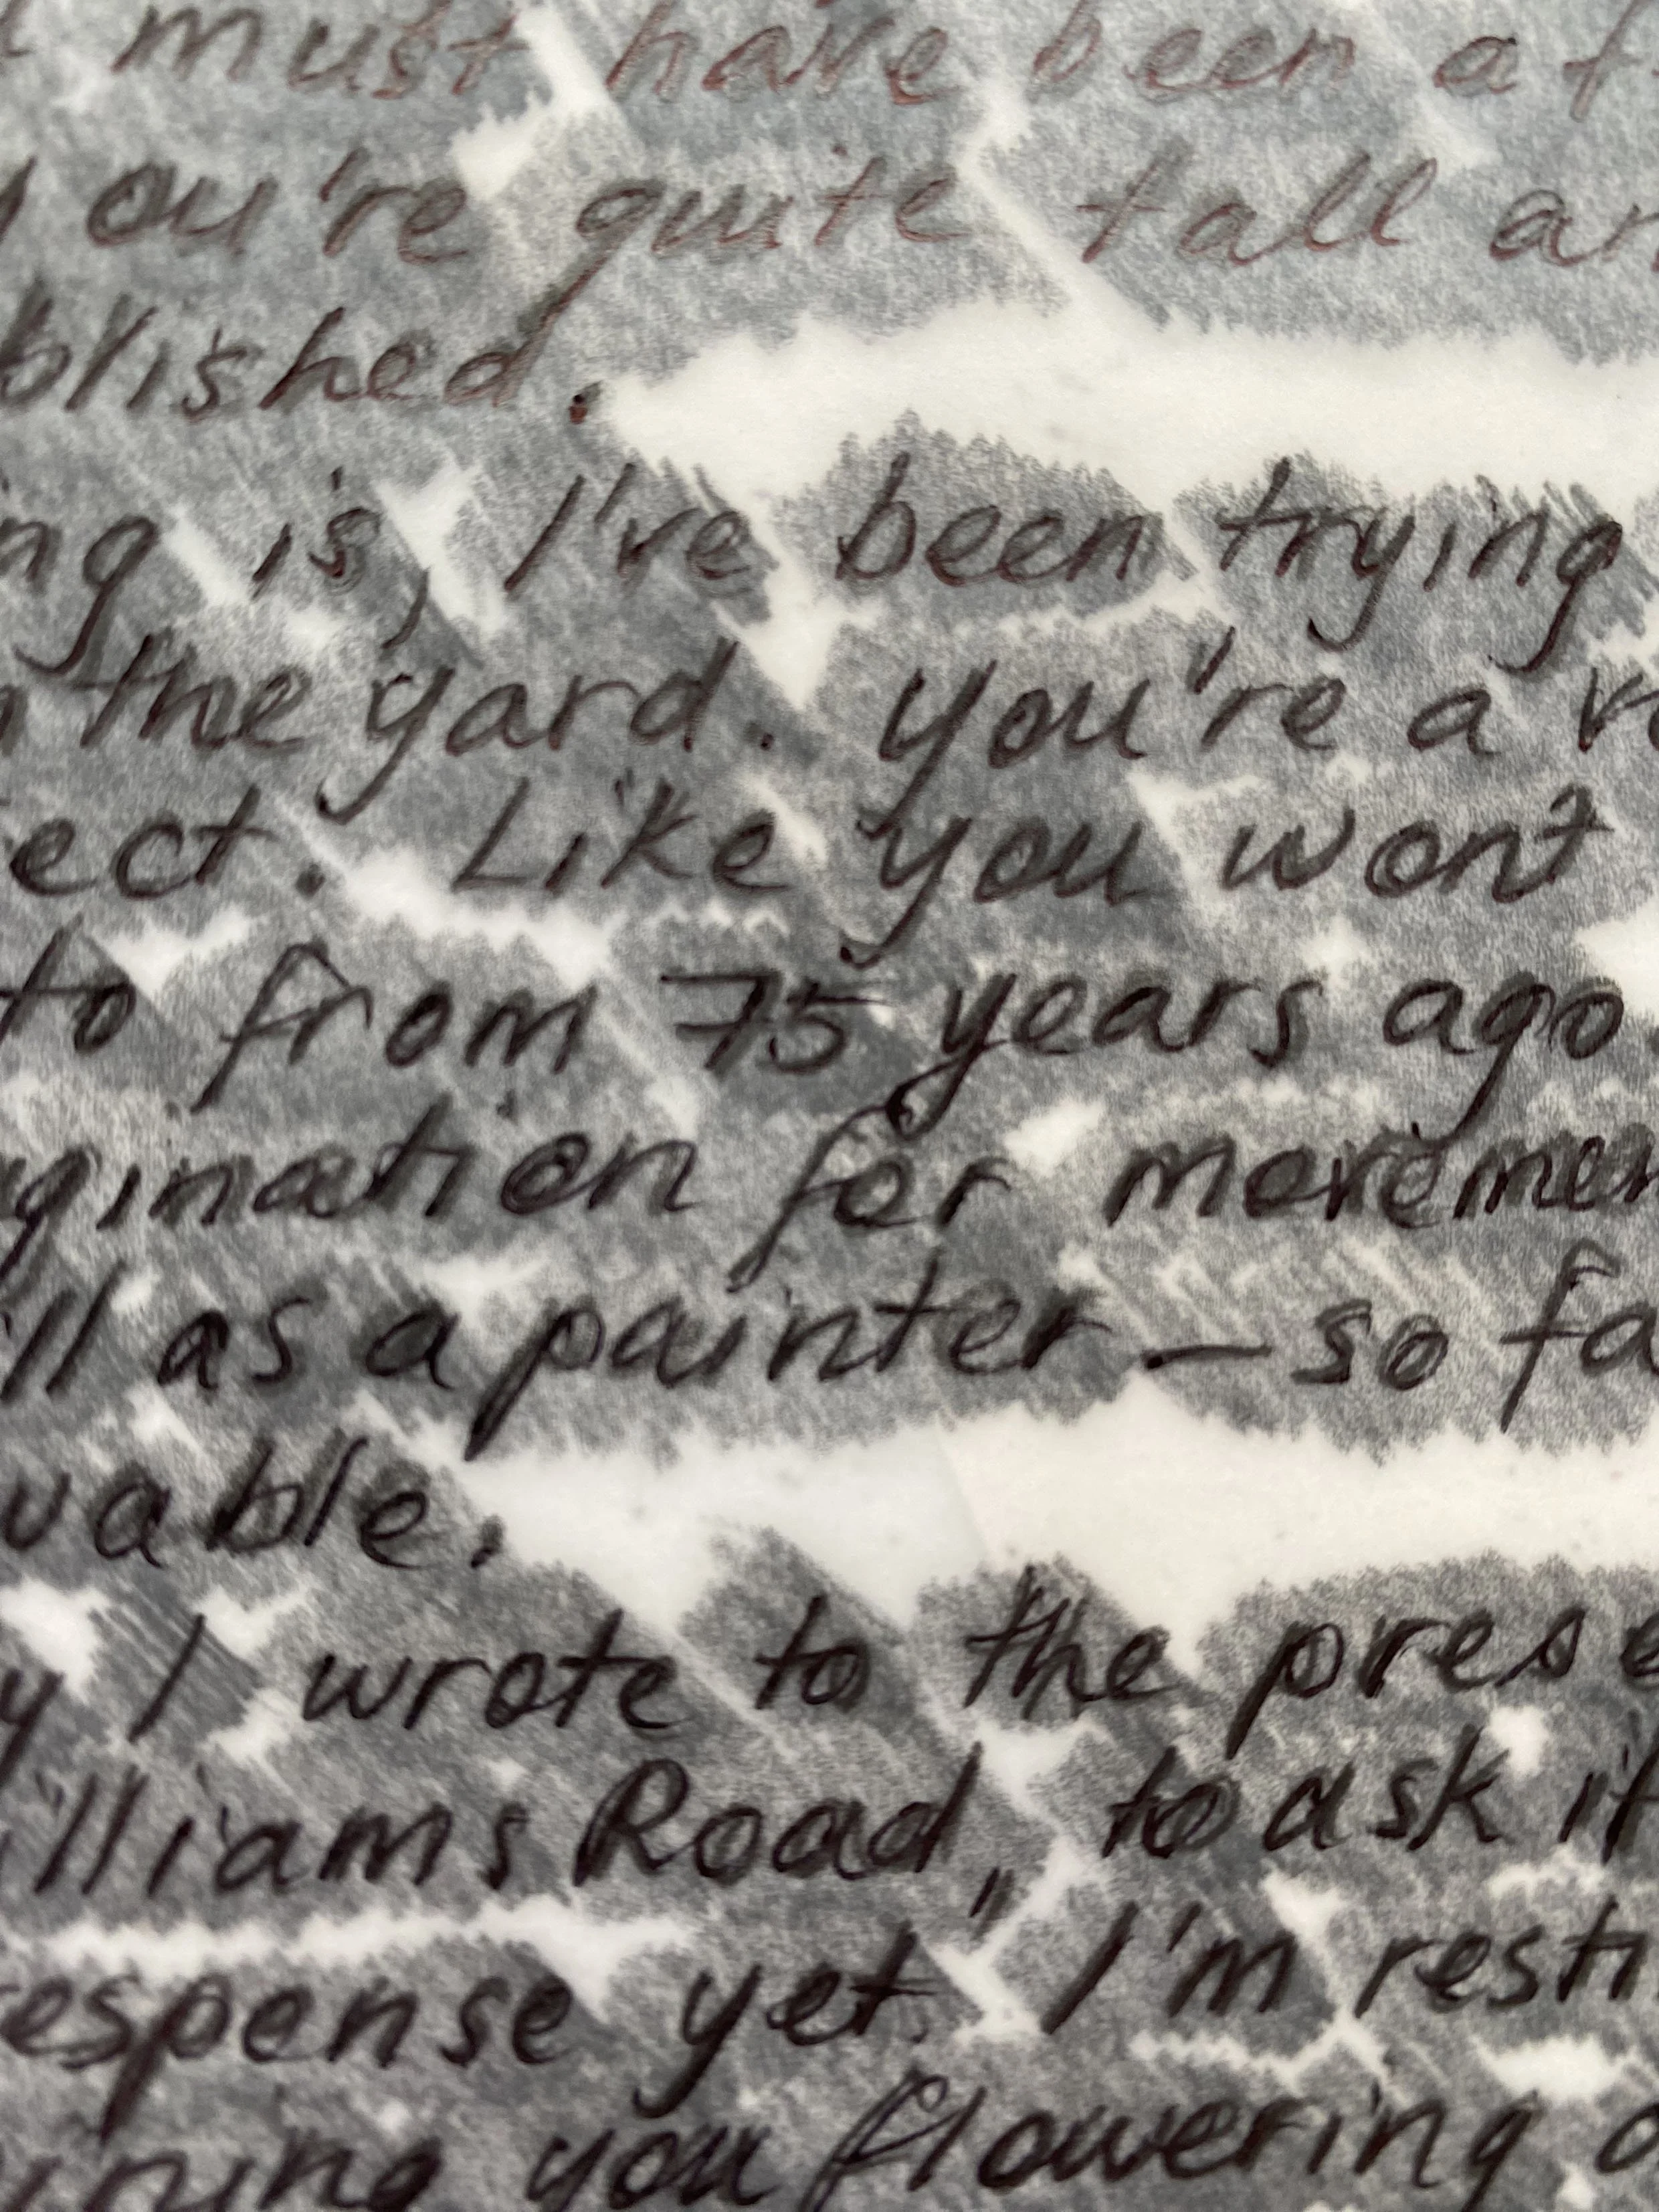 must have been a f
you're quite tall an
blished.
ng is, I've been trying
n the yard. You're a v
ect. Like you won't
to from 75 years ago.
gination for movemen
ll as a painter — so fa
vable.
y I wrote to the prese
illiams Road, to ask if
esponse yet. I'm resti
ining you flowering